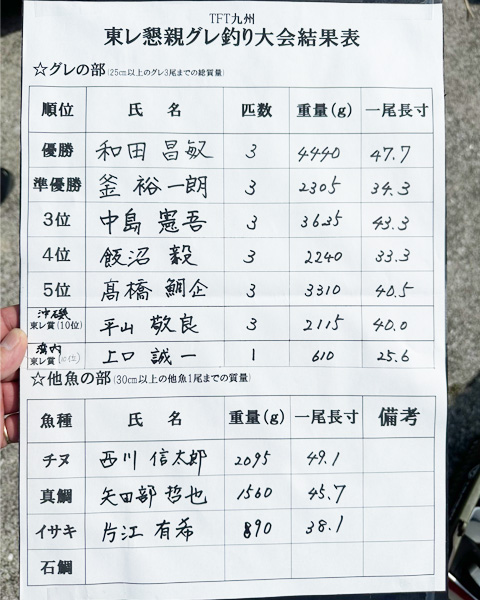 TFT九州
東レ懇親グレ釣り大会結果表
☆グレの部(25cm以上のグレ3尾までの総質量)
順位 氏 名 匹数 重量(g) 一尾長寸
優勝 和田 昌敏 3 4440 47.7
準優勝 釜 裕一朗 3 2305 34.3
3位 中島 憲吾 3 3635 43.3
4位 飯沼 毅 3 2240 33.3
5位 髙橋 鯛企 3 3310 40.5
沖磯
東レ賞(10位) 平山 敬良 3 2115 40.0
湾内
東レ賞(10位) 上口 誠一 1 610 25.6
☆他魚の部(30cm以上の他魚1尾までの質量)
魚種 氏 名 重量(g) 一尾長寸 備考
チヌ 西川 信太郎 2095 49.1
真鯛 矢田部 哲也 1560 45.7
イサキ 片江 有希 890 38.1
石鯛